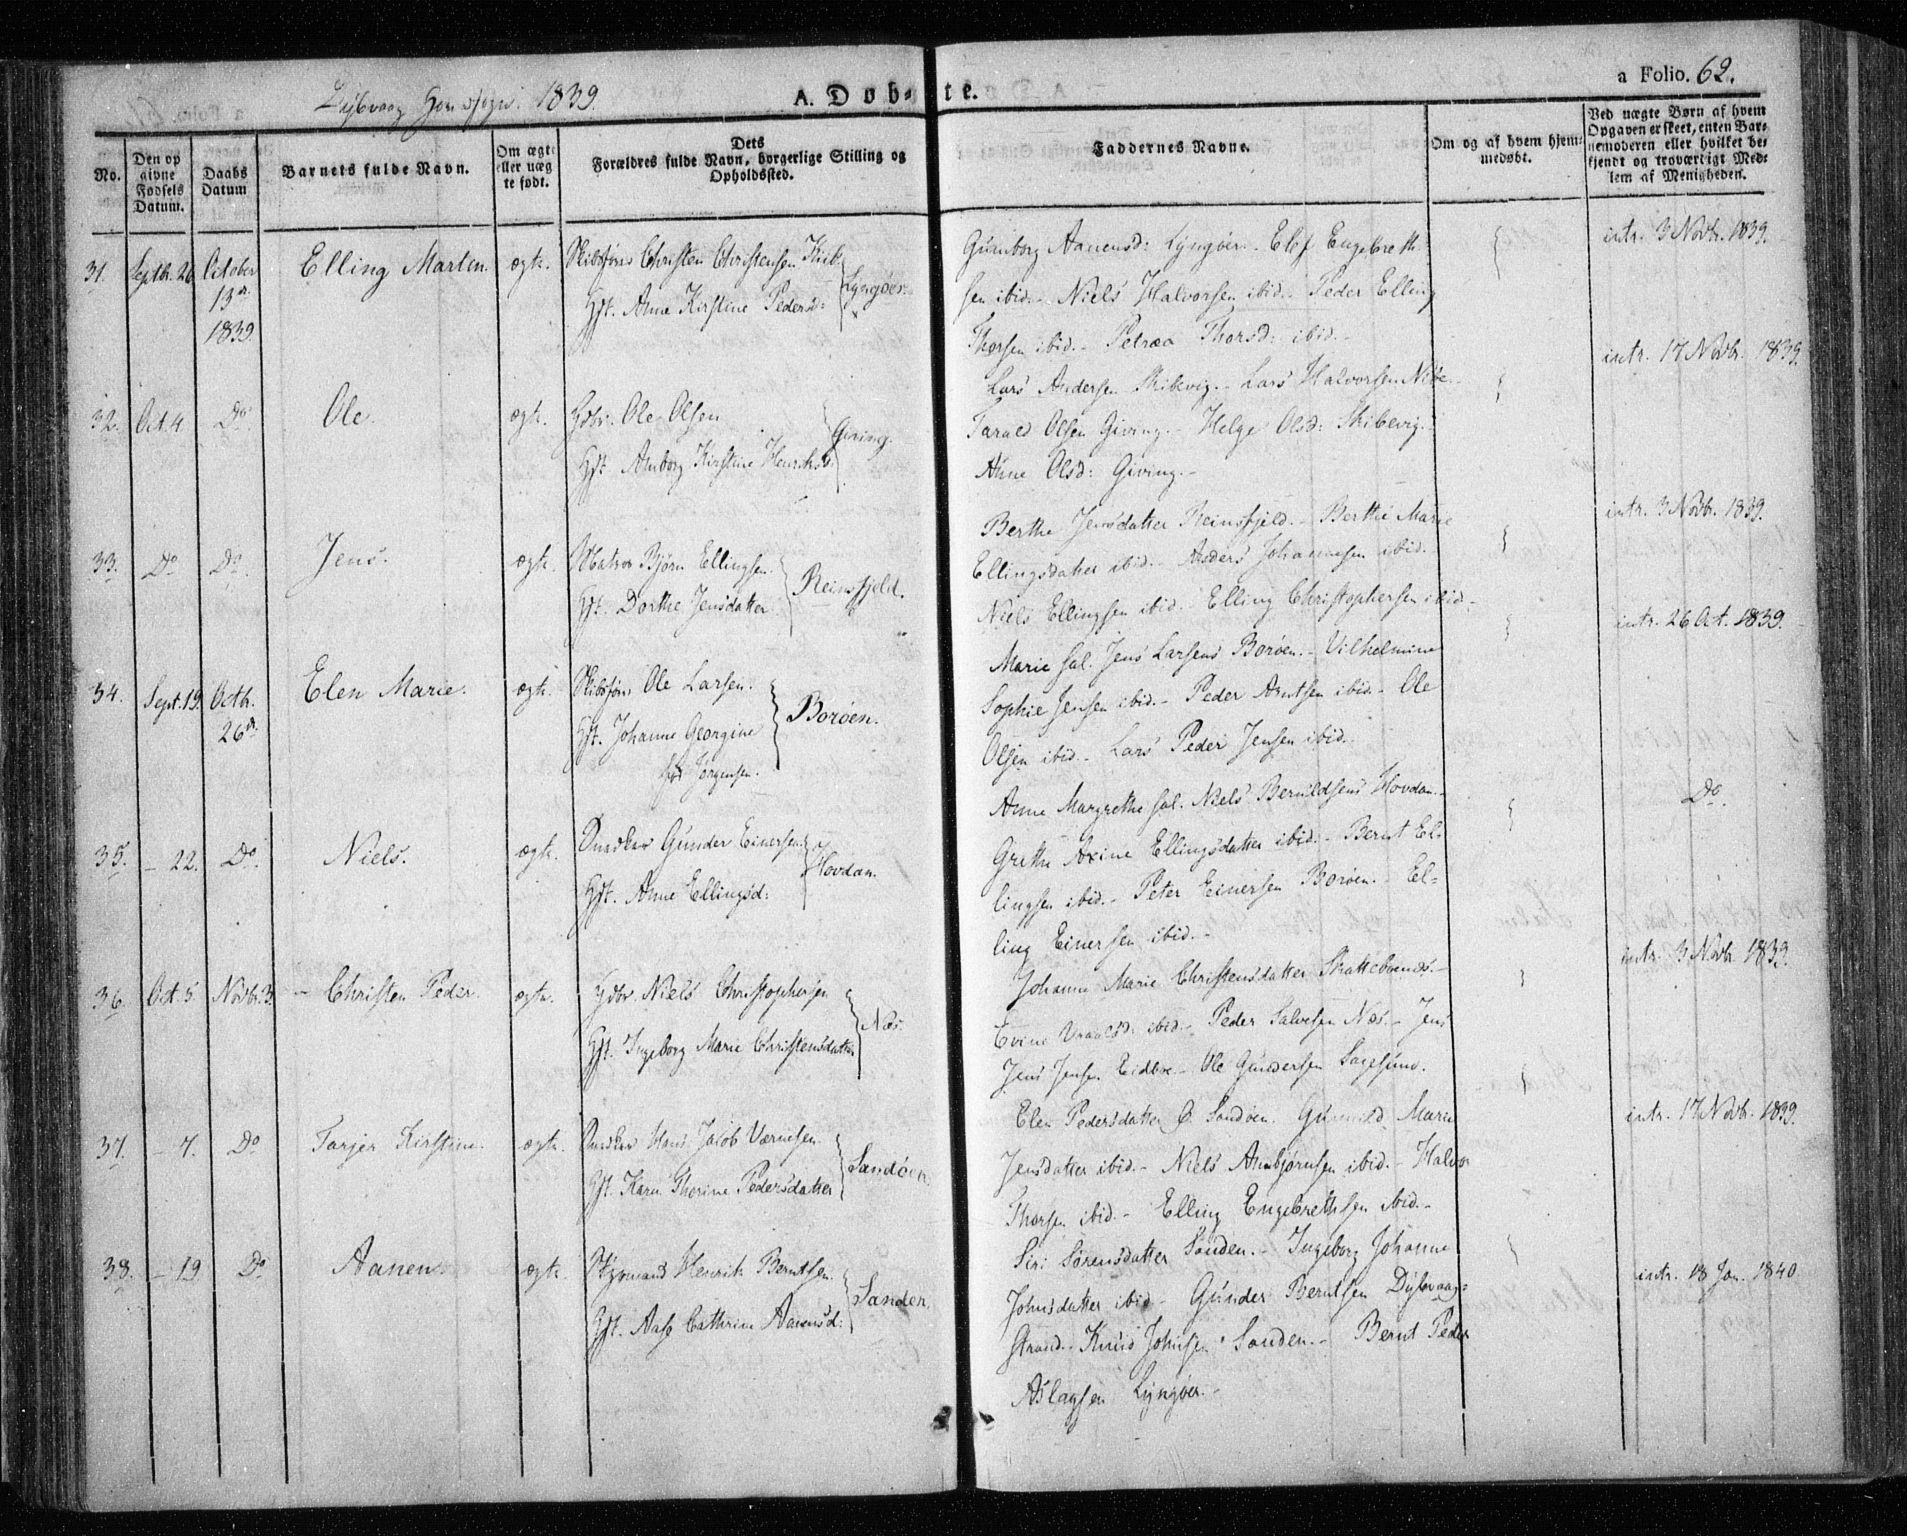 Dybvaag Hovedsogn. 1839.
A. Døb-te.
a Folio. 62.
No.
Den op
givne
Fødsels
Datum.
Daabs
Datum
Barnets fulde Navn.
Om ægte
eller uæg
te født.
Dets
Forældres fulde Navn, borgerlige Stilling og
Opholdssted.
Faddernes Navne.
Om og af hvem hjem-
medøbt.
Ved uægte Børn af hvem
Opgaven er skeet, enten Bar-
nemoderen eller hvilket be-
kjendt og troværdigt Med-
lem af Menigheden.
31. Septb. 26 October
13de
1839.
Elling Marten. ægte. Skibsfører Christen Christensen
Hst. Anne Kirstine Pedersd:
Lyngøer.
Gunborg Aanensd: Lyngøer. Elef Engebreth-
sen ibid. - Niels Halvorsen ibid. - Peder Elling
Thorsen ibid. - Petræa Thorsd: ibid. -
intr. 3 Novbr. 1839.
32. Oct. 4 Do Ole. ægte. Gdbr. Ole Olsen
Hst. Amborg Kirstine Henriksd:
Giving.
Lars Andersen Skibevig. - Lars Halvorsen
Tarald Olsen Giving. - Helge Olsd: Skibevig. -
Anne Olsd: Giving. -
intr. 17 Novbr. 1839.
33. Do Do. Jens. ægte. Matros Bjørn Ellingsen.
Hst. Dorthe Jensdatter
Reinsfjeld.
Berthe Jensdatter Reinsfjeld. - Berthe Marie
Ellingsdatter ibid. - Anders Johannesen ibid.
Niels Ellingsen ibid. Elling Christophersen ibid -
intr. 3 Novbr. 1839.
34. Sept. 19. Octb.
26de
Elen Marie. ægte. Skibsfører Ole Larsen.
Hst. Johanne Georgine
født Jørgensen.
Borøen.
Marie sal. Jens Larsens Borøen. - Vilhelmine
Sophie Jensen ibid. - Peder Arntsen ibid. - Ole
Olsen ibid. - Lars Peder Jensen ibid.
intr. 26 Oct. 1839.
35. - 22. Do. Niels. ægte. Gunder Einersen.
Hst. Anne Ellingsd:
Hovdan.
Anne Margrethe sal. Niels Beruldsens Hovdan. -
Grethe Axine Ellingsdatter ibid. - Bernt El-
lingsen ibid. - Peter Einersen Borøen. - El-
ling Einersen ibid. -
Do.
36. Oct. 5. Novbr. 3. Christen Peder. ægte. Gdbr Niels Christophersen
Hst. Ingeborg Marie Christensdatter
Næs.
Johanne Marie Christensdatter
Evine Vraalsd: ibid. - Peder Salvesen Næs. - Jens
Jens Jensen Eidboe. - Ole Gundersen Sagesund.
intr. 3 Novbr. 1839.
37. - 7. Do Tarjer Kirstine. ægte. Hans Jacob Værnesen
Hst. Karen Therine Pedersdatter
Sandøen.
Elen Pedersdatter Sandøen. Gunnild Marie
Jensdatter ibid. - Niels Ambjørnsen ibid. - Halvor
Thorsen ibid. - Elling Engebrethsen ibid. -
intr. 17 Novbr. 1839.
38. - 19 Do Aanen. ægte. Styrmand Henrik Berntsen.
Hst. Aase Cathrine Aanensd:
Sanden.
Siri Sørensdatter Sanden. - Ingeborg Johanne
Johnsdatter ibid - Gunder Berntsen Dybvaag-
strand. - Knud Johnsen Sanden. - Bernt Peder
Aslagsen Lyngøer. -
intr. 18 Jan. 1840